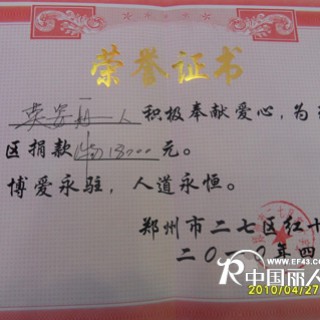 荣誉证书
人 积极奉献爱心，为
区捐款 18000 元。
博爱永驻，人道永恒。
郑州市二七区红十
二〇一〇年四
www.EF43.com
中国丽人
2010/04/27